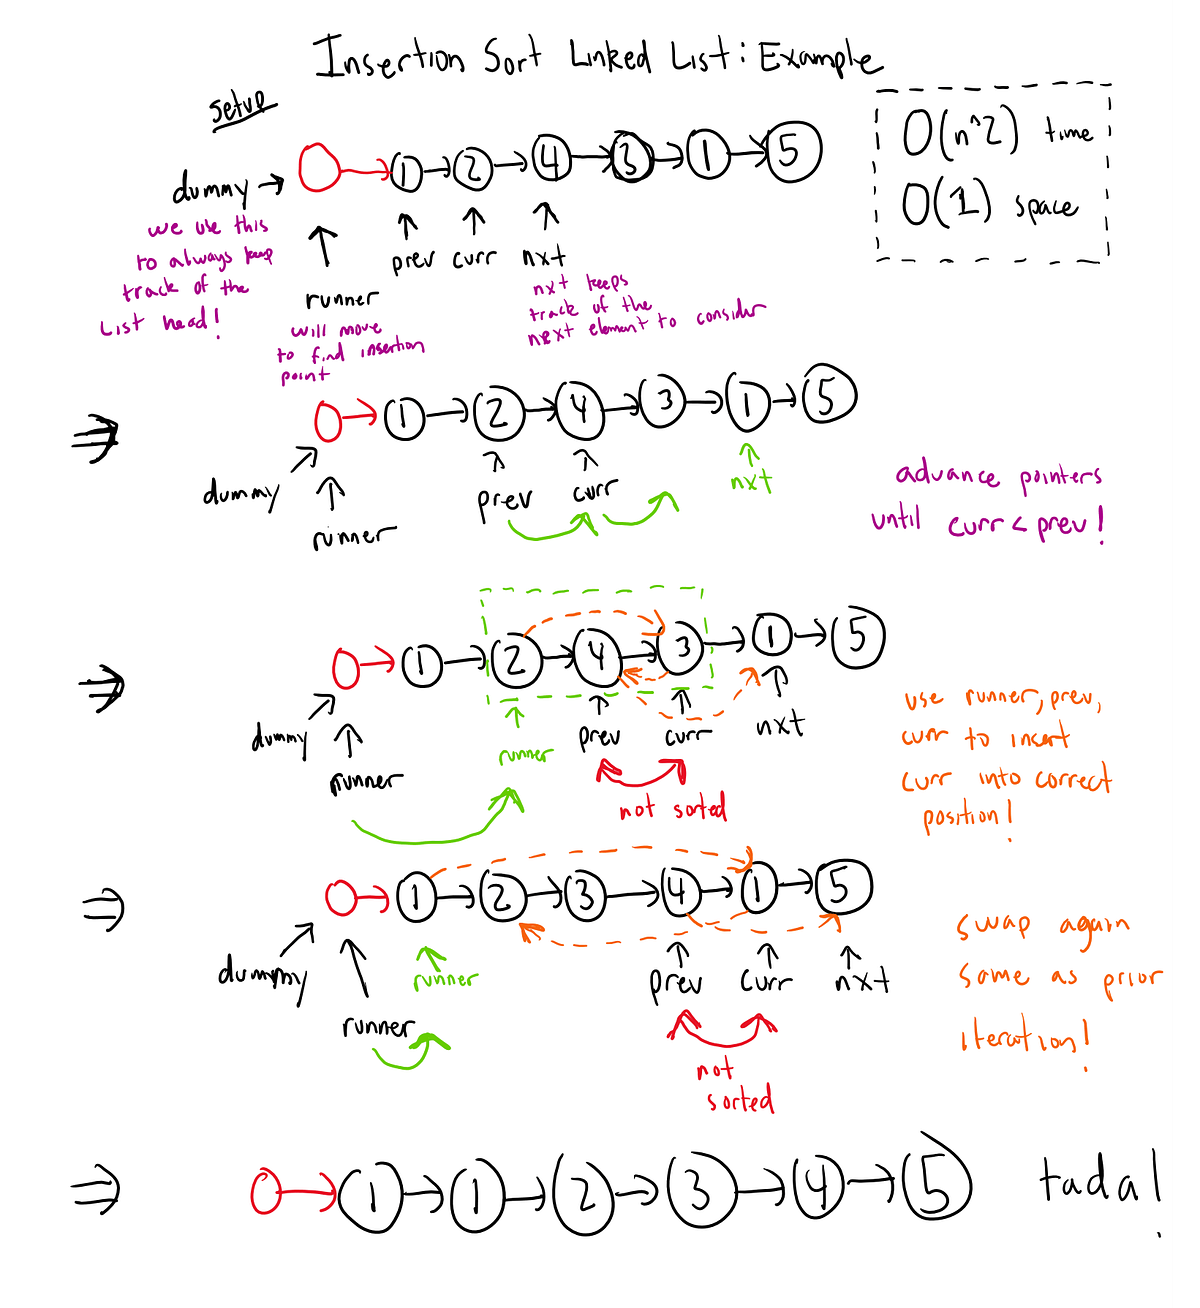 Insertion Sort Linked List: Example
setup
O(n^2) time
O(1) space
dummy → 1 2 4 3 1 5
we use this
to always keep
track of the
List head!
prev curr nxt
runner
will move
to find insertion
point
nxt keeps
track of the
next element to consider
⇒ 1 2 4 3 1 5
dummy
runner
prev curr nxt
advance pointers
until curr < prev!
⇒ 1 2 4 3 1 5
dummy
runner
runner
prev curr nxt
not sorted
use runner, prev,
curr to insert
curr into correct
position!
⇒ 1 2 3 4 1 5
dummy
runner
runner
prev curr nxt
not
sorted
swap again
same as prior
iteration!
⇒ 1 1 2 3 4 5 tada!